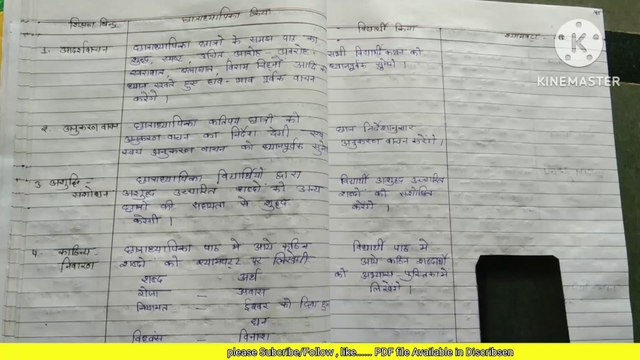 शिक्षण बिन्दु छात्राध्यापिका क्रिया विद्यार्थी क्रिया श्यामपट्ट
1. आदर्शवाचन छात्राध्यापिका छात्रों के समक्ष पाठ का
शुद्ध, स्पष्ट, उचित आरोह अवरोह, सभी विद्यार्थी कथन को
बलाघात, विराम चिह्नों आदि का ध्यानपूर्वक सुनेंगे।
ध्यान रखते हुए हाव-भाव पूर्वक वाचन
करेंगी।
2. अनुकरण वाचन छात्राध्यापिका कतिपय छात्रों को
अनुकरण वाचन का निर्देश देगी छात्र निर्देशानुसार
स्वयं अनुकरण वाचन को ध्यानपूर्वक अनुकरण वाचन करेंगे।
3 अशुद्धि- छात्राध्यापिका विद्यार्थियों द्वारा विद्यार्थी अशुद्ध उच्चारित
संशोधन अशुद्ध उच्चारित शब्दों को अन्य शब्दों को संशोधित
छात्रों की सहायता से शुद्ध करेंगे।
करेगी।
4. काठिन्य छात्राध्यापिका पाठ में आये कठिन विद्यार्थी पाठ में
निवारण शब्दों को श्यामपट्ट पर लिखेगी आये कठिन शब्दार्थों
शब्द अर्थ को अभ्यास पुस्तिका में
रोजा - लिखेंगे।
नियामत - ईश्वर का दिया हुआ
विध्वंस - विनाश
KINEMASTER
please Subcribe/Follow , like....... PDF file Available in Discribsen